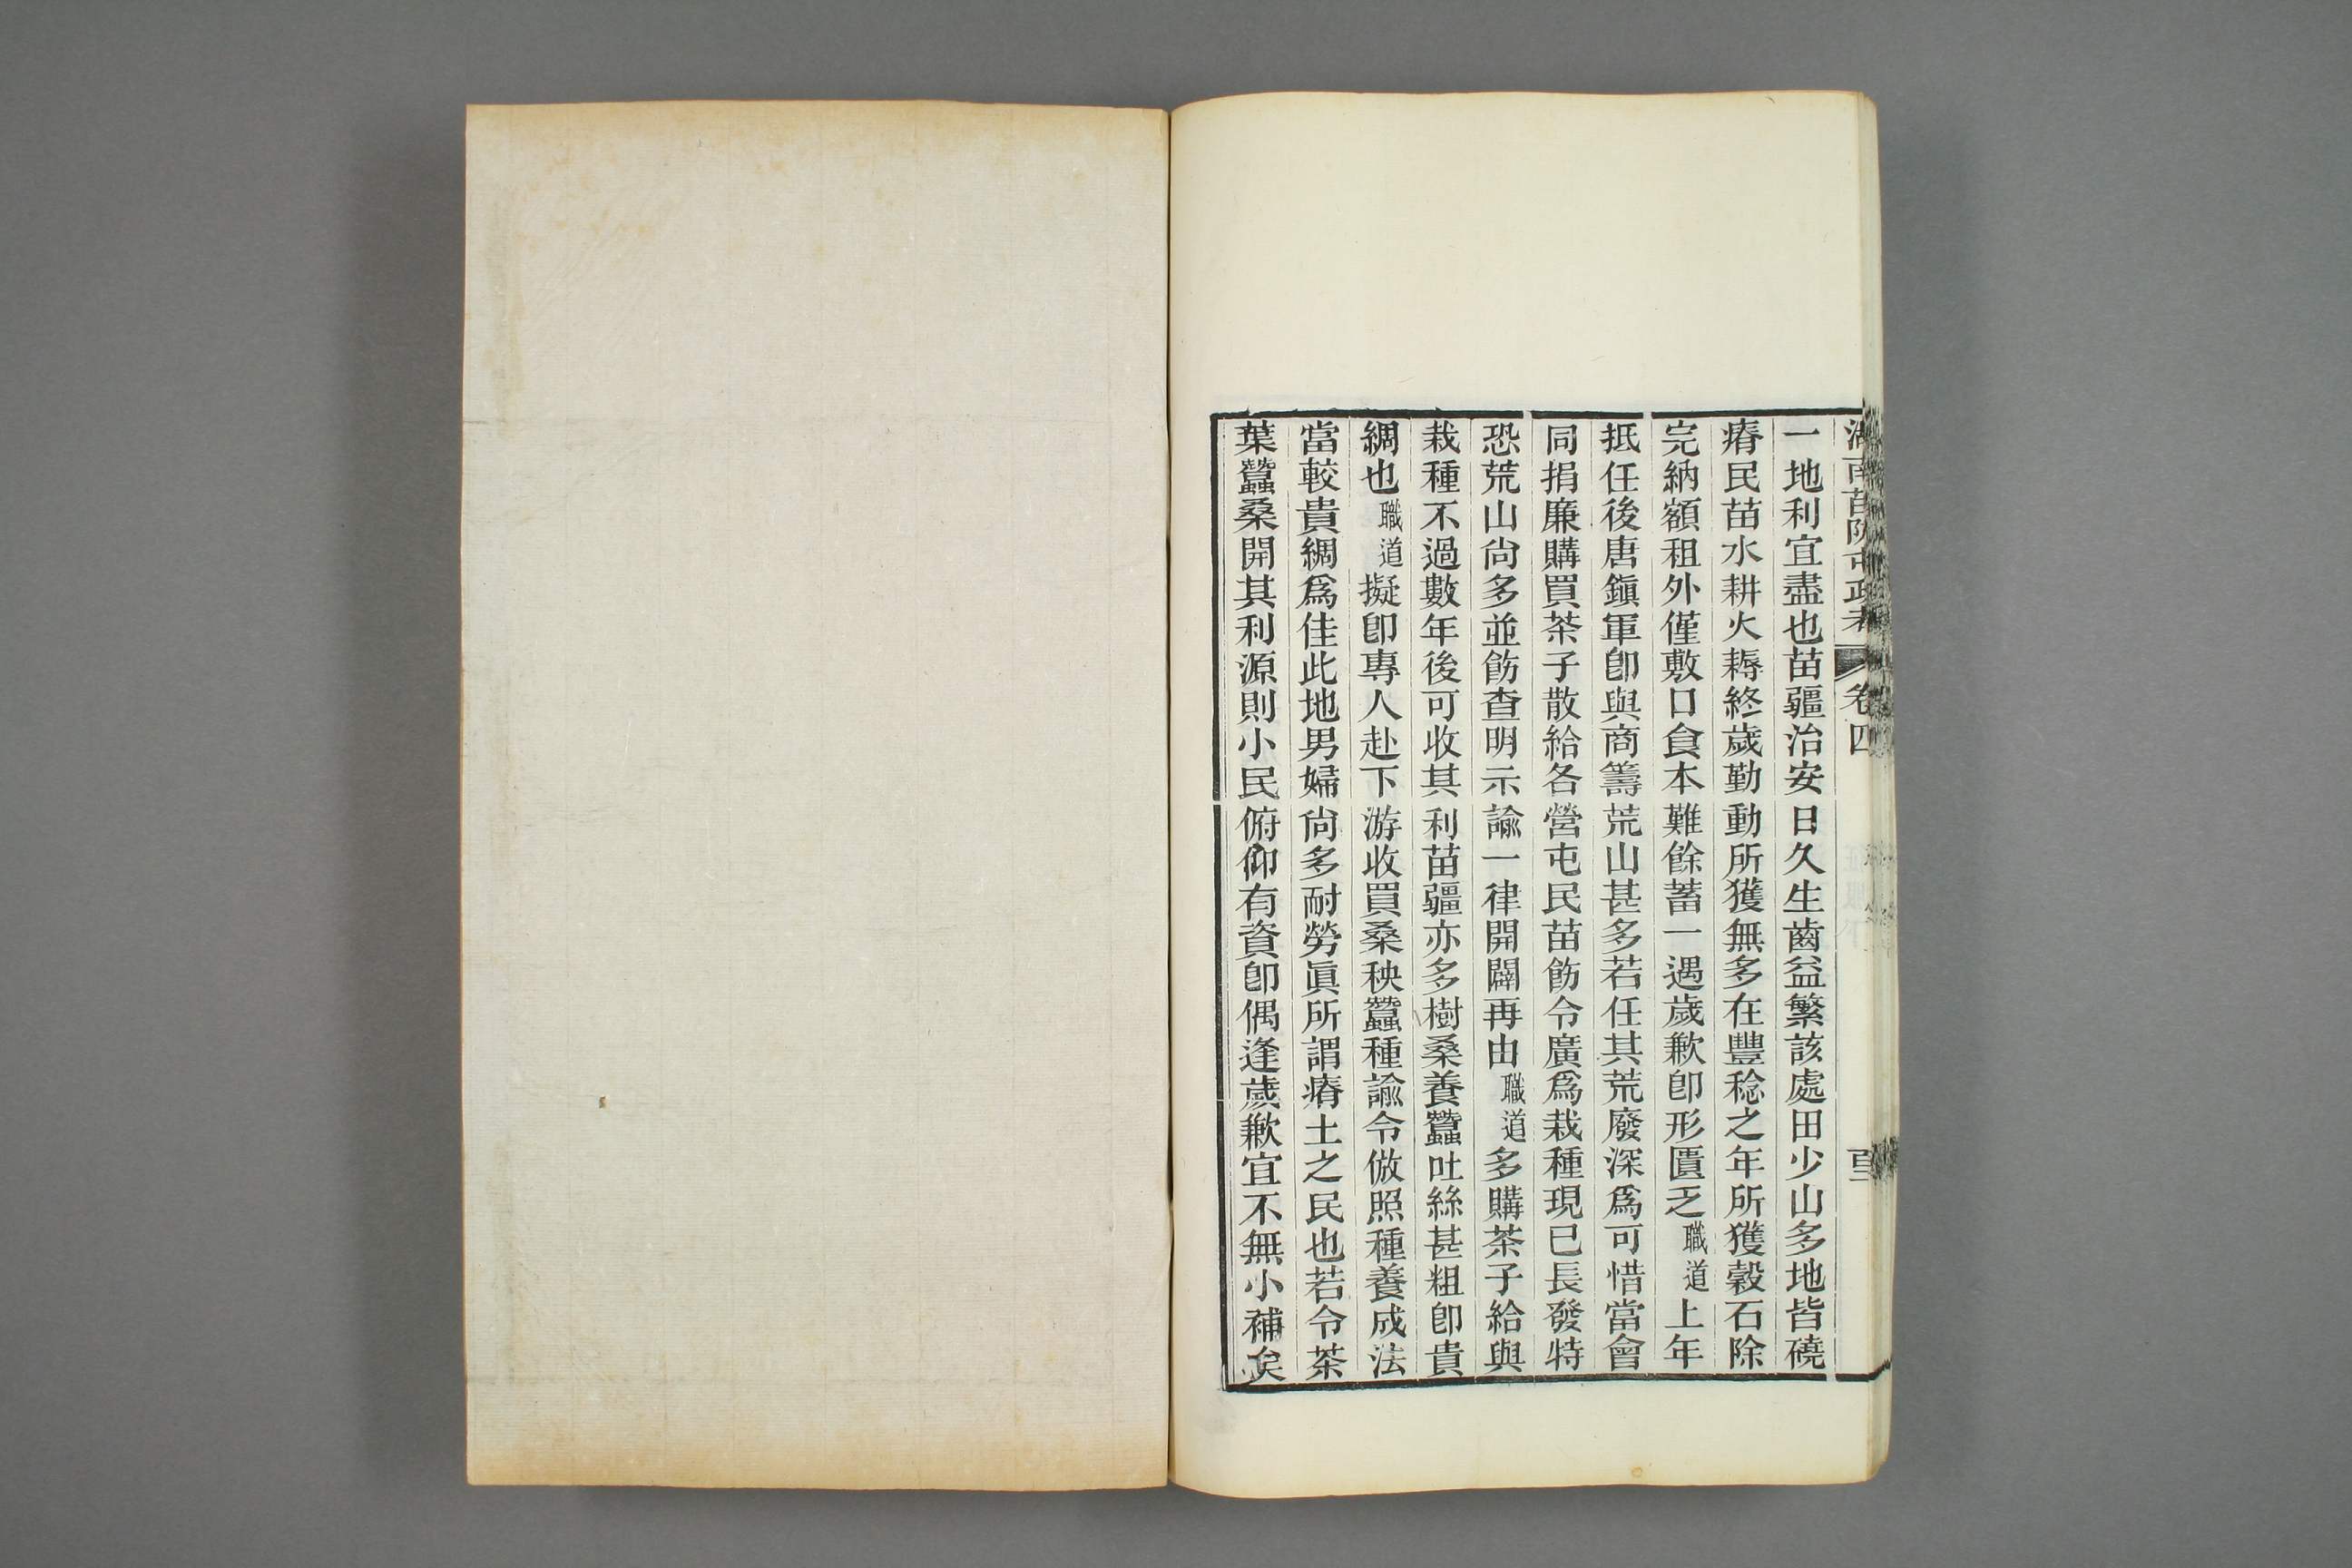 湖南苗防屯政考 卷四
一地利宜盡也苗疆治安日久生齒益繁該處田少山多地皆磽
瘠民苗水耕火耨終歲勤動所獲無多在豐稔之年所獲穀石除
完納額租外僅敷口食本難餘蓄一遇歲歉卽形匱乏職道上年
抵任後唐鎭軍卽與商籌荒山甚多若任其荒廢深爲可惜當會
同捐廉購買茶子散給各營屯民苗飭令廣爲栽種現已長發特
恐荒山尙多並飭查明示諭一律開闢再由職道多購茶子給與
栽種不過數年後可收其利苗疆亦多樹桑養蠶吐絲甚粗卽貴
綢也職道擬卽專人赴下游收買桑秧蠶種諭令倣照種養成法
當較貴綢爲佳此地男婦尙多耐勞眞所謂瘠土之民也若令茶
葉蠶桑開其利源則小民俯仰有資卽偶逢歲歉宜不無小補矣